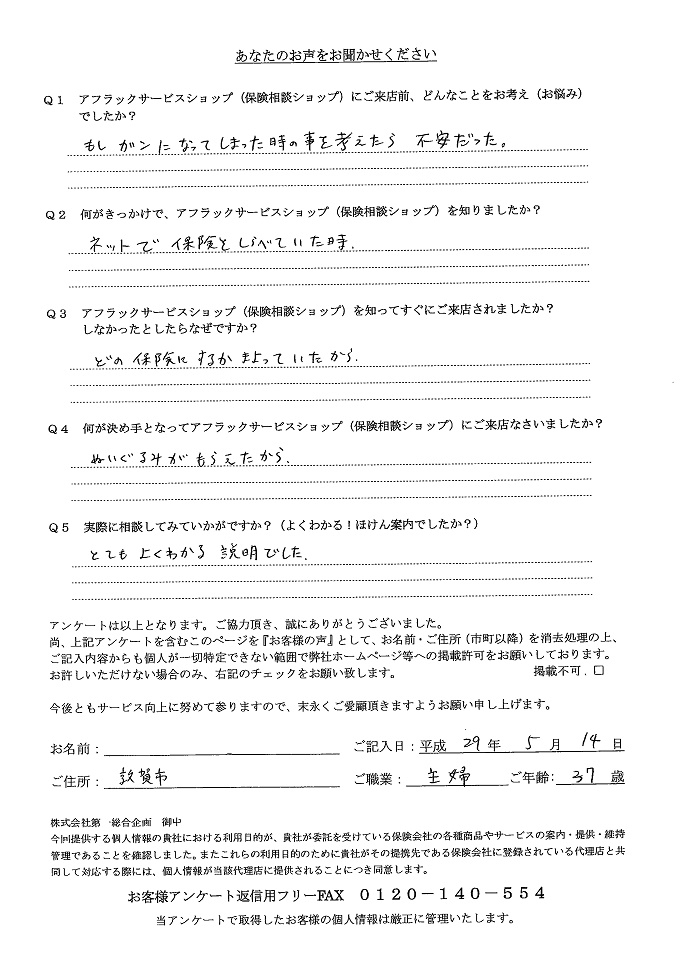 あなたのお声をお聞かせください
Q1 アフラックサービスショップ（保険相談ショップ）にご来店前、どんなことをお考え（お悩み）
でしたか？
もし ガンに なってしまった時の事を考えたら 不安だった。
Q2 何がきっかけで、アフラックサービスショップ（保険相談ショップ）を知りましたか？
ネットで 保険をしらべていた時.
Q3 アフラックサービスショップ（保険相談ショップ）を知ってすぐにご来店されましたか？
しなかったとしたらなぜですか？
どの 保険に するか まよっていたから.
Q4 何が決め手となってアフラックサービスショップ（保険相談ショップ）にご来店なさいましたか？
ぬいぐるみが もらえたから.
Q5 実際に相談してみていかがですか？（よくわかる！ほけん案内でしたか？）
とても よくわかる 説明でした.
アンケートは以上となります。ご協力頂き、誠にありがとうございました。
尚、上記アンケートを含むこのページを『お客様の声』として、お名前・ご住所（市町以降）を消去処理の上、
ご記入内容からも個人が一切特定できない範囲で弊社ホームページ等への掲載許可をお願いしております。
お許しいただけない場合のみ、右記のチェックをお願い致します。 掲載不可．□
今後ともサービス向上に努めて参りますので、末永くご愛顧頂きますようお願い申し上げます。
お名前： ご記入日：平成 29 年 5 月 14 日
ご住所： 敦賀市 ご職業： 主婦 ご年齢： 37 歳
株式会社第一総合企画 御中
今回提供する個人情報の貴社における利用目的が、貴社が委託を受けている保険会社の各種商品やサービスの案内・提供・維持
管理であることを確認しました。またこれらの利用目的のために貴社がその提携先である保険会社に登録されている代理店と共
同して対応する際には、個人情報が当該代理店に提供されることにつき同意します。
お客様アンケート返信用フリーFAX 0120－140－554
当アンケートで取得したお客様の個人情報は厳正に管理いたします。